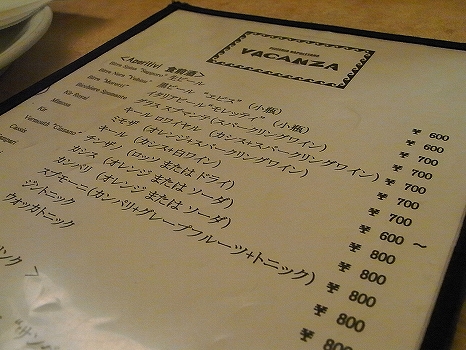 VACANZA
<Aperitivi 食前酒>
Birra Sappro 生ビール ¥ 600
黒ビール "エビス" (小瓶) ¥ 600
イタリアビール "モレッティ" (小瓶) ¥ 700
グラス スプマンテ (スパークリングワイン) ¥ 700
Kir Royal キール ロワイヤル (カシス+スパークリングワイン) ¥ 700
Mimosa ミモザ (オレンジ+スパークリングワイン) ¥ 700
Kir キール (カシス+白ワイン) ¥ 600 ～
Vermouth チンザノ (ロッソ または ドライ) ¥ 800
Cassis カシス (オレンジ または ソーダ) ¥ 800
カンパリ (オレンジ または ソーダ) ¥ 800
スプモーニ (カンパリ+グレープフルーツ+トニック) ¥ 800
ジントニック ¥ 800
ウォッカトニック ¥ 800